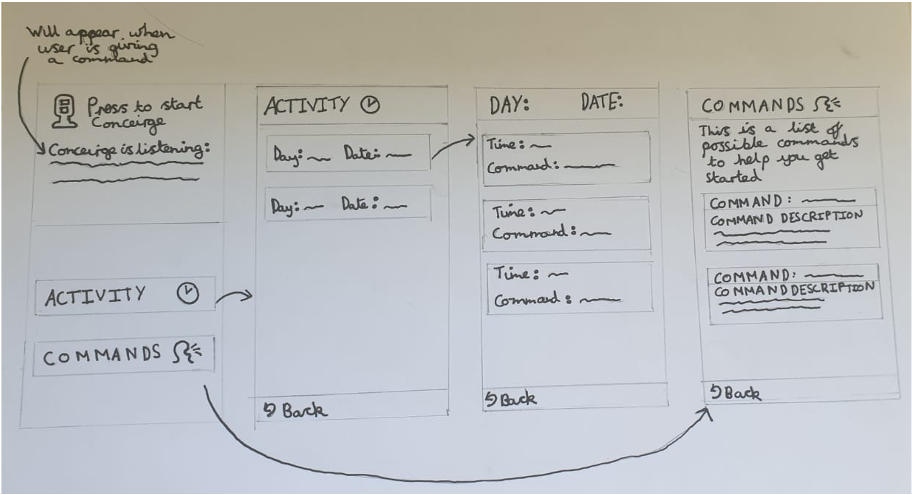 Will appear when
user is giving
a command
Press to start
Conceirge
Conceirge is listening:
ACTIVITY
COMMANDS
ACTIVITY
Day: Date:
Day: Date:
Back
DAY: DATE:
Time:
Command:
Time:
Command:
Time:
Command:
Back
COMMANDS
This is a list of
possible commands
to help you get
started
COMMAND:
COMMAND DESCRIPTION
COMMAND:
COMMAND DESCRIPTION
Back